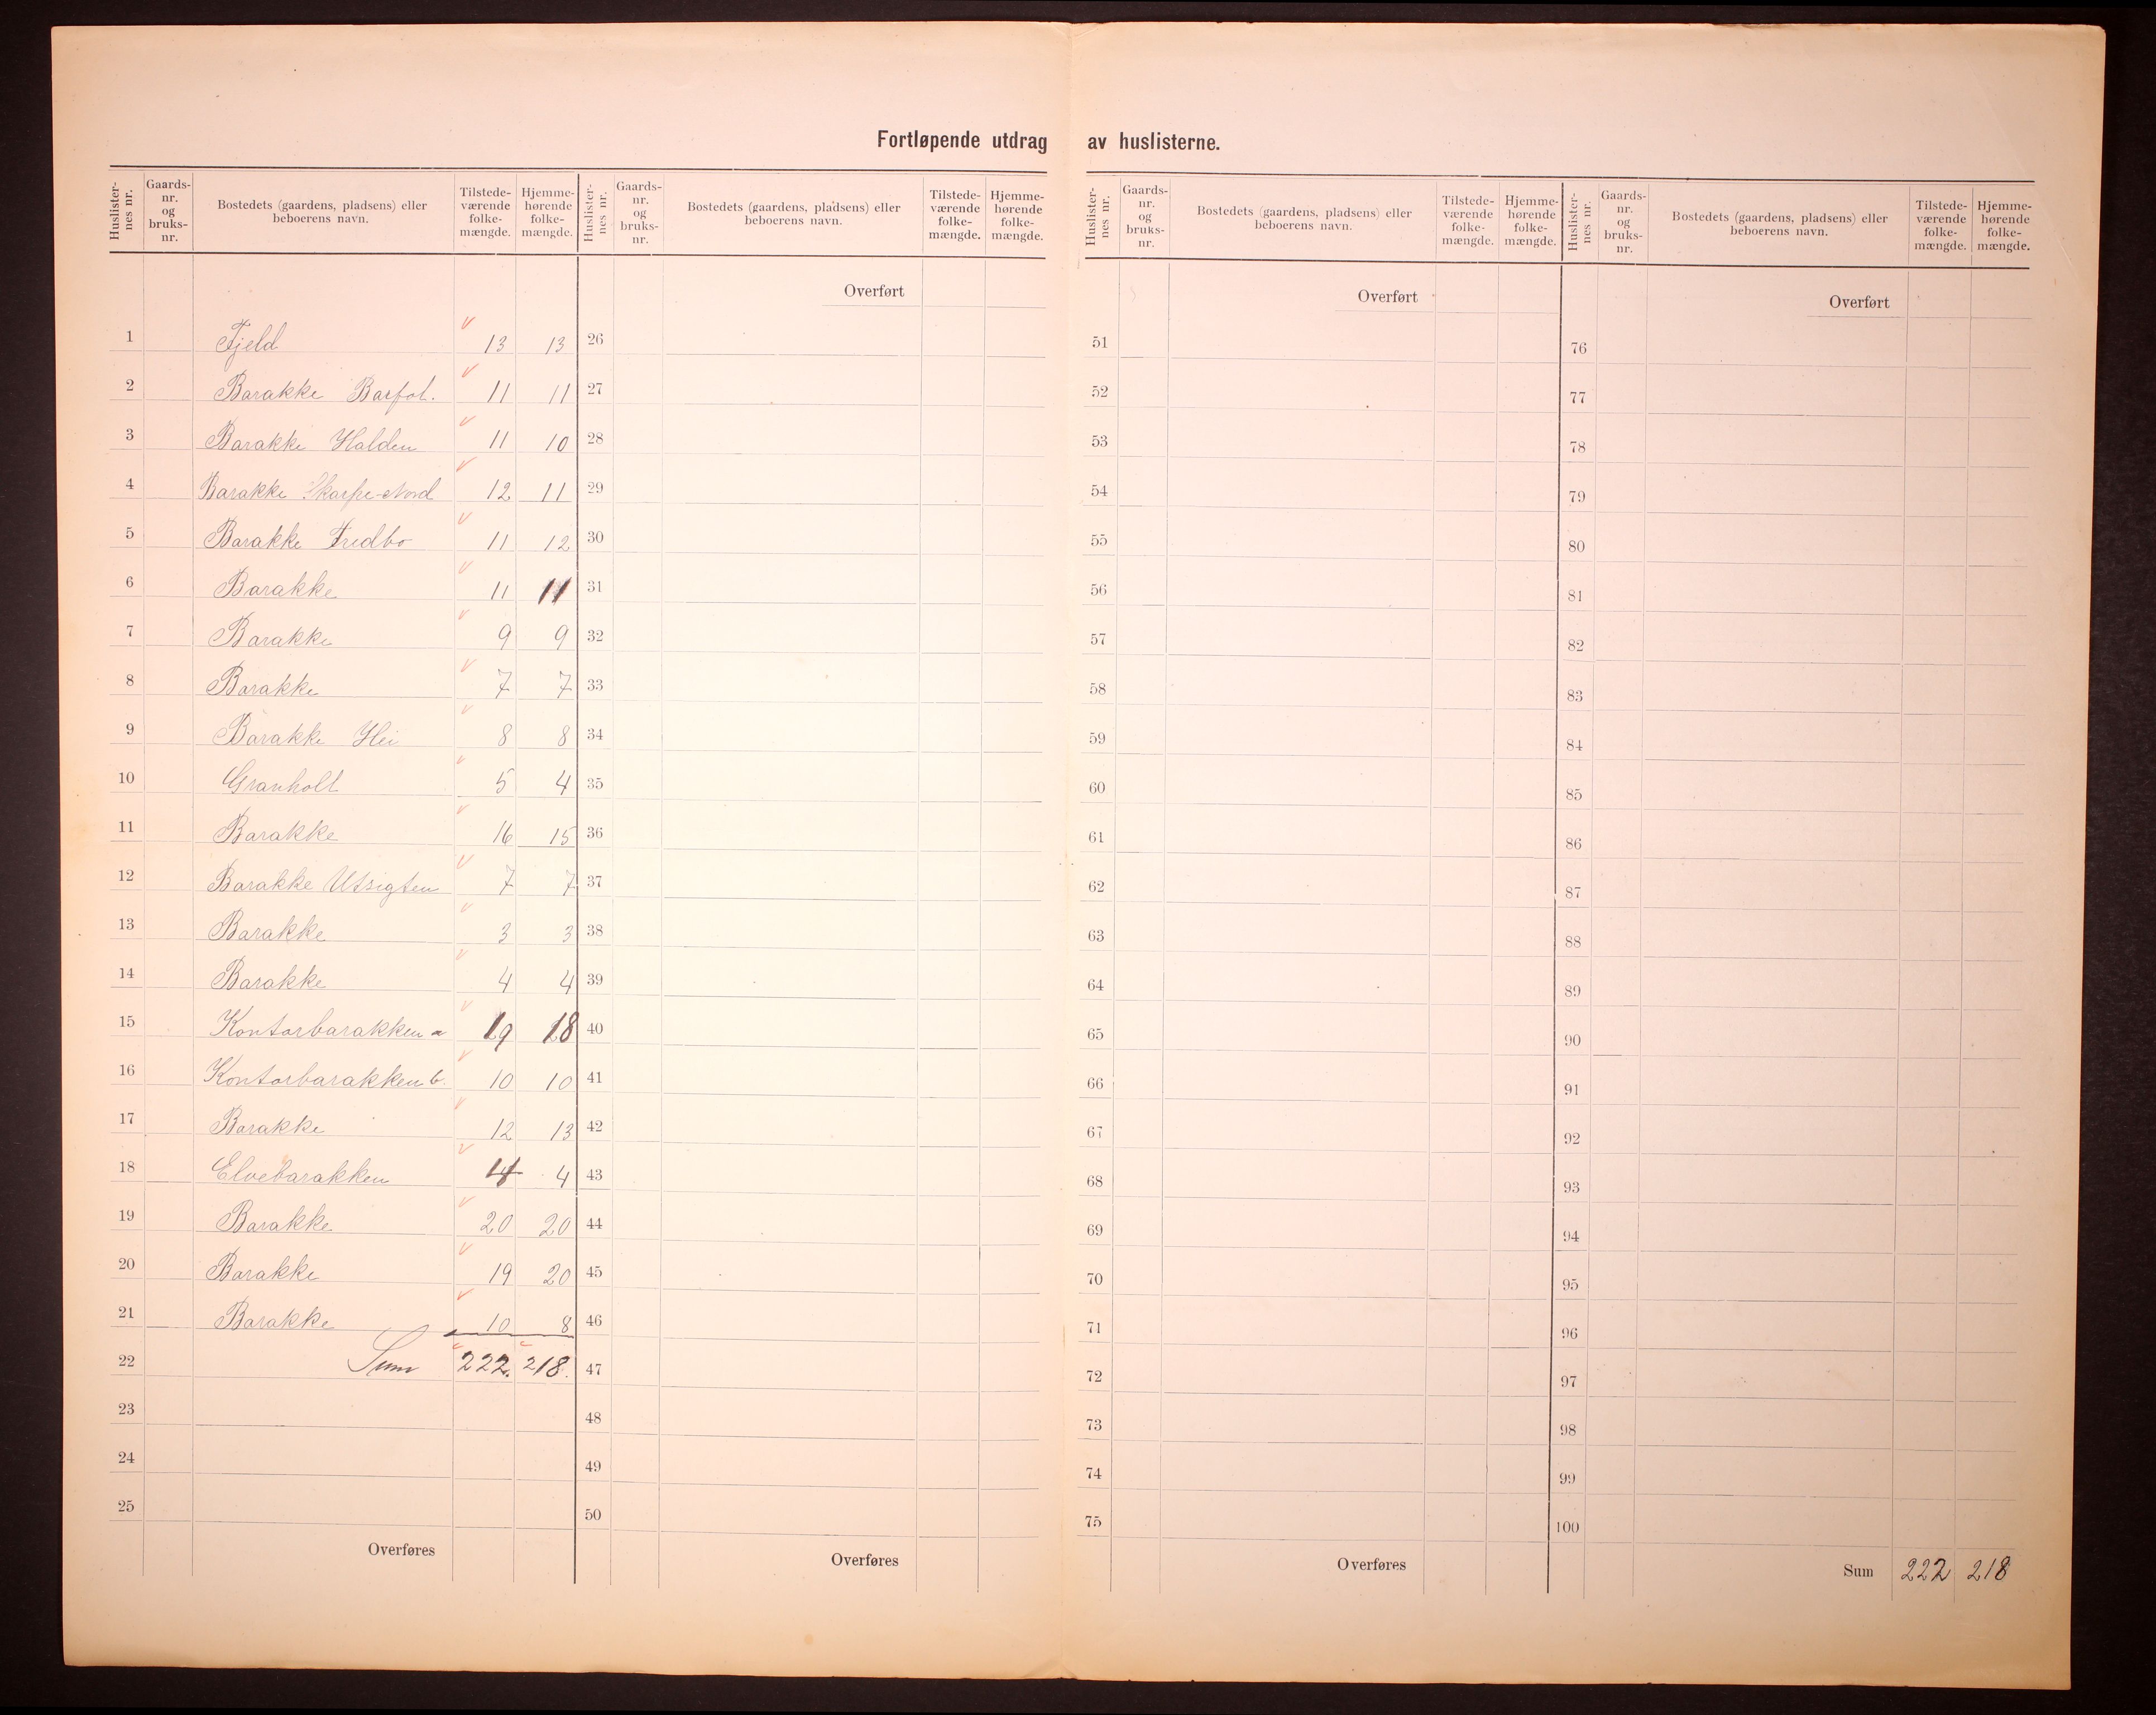 Fortløpende utdrag av huslisterne.
Huslister-nes nr. Gaards-nr. og bruks-nr. Bostedets (gaardens, pladsens) eller beboerens navn. Tilstede-værende folke-mængde. Hjemme-hørende folke-mængde.
1 Fjeld 13 13
2 Barakke 11 11
3 Barakke Halden 11 10
4 Barakke Skarpe-Nord 12 11
5 Barakke Fredbo 11 12
6 Barakke 11 11
7 Barakke 9 9
8 Barakke 7 7
9 Barakke Hei 8 8
10 Granholt 5 4
11 Barakke 16 15
12 Barakke Utsigten 7 7
13 Barakke 3 3
14 Barakke 4 4
15 Kontorbarakken a 19 18
16 Kontorbarakken b. 10 10
17 Barakke 12 13
18 Elvebarakken 4 4
19 Barakke 20 20
20 Barakke 19 20
21 Barakke 10 8
22 Sum 222. 218.
23
24
25
Overføres
Huslister-nes nr. Gaards-nr. og bruks-nr. Bostedets (gaardens, pladsens) eller beboerens navn. Tilstede-værende folke-mængde. Hjemme-hørende folke-mængde.
Overført
26
27
28
29
30
31
32
33
34
35
36
37
38
39
40
41
42
43
44
45
46
47
48
49
50
Overføres
Huslister-nes nr. Gaards-nr. og bruks-nr. Bostedets (gaardens, pladsens) eller beboerens navn. Tilstede-værende folke-mængde. Hjemme-hørende folke-mængde.
Overført
51
52
53
54
55
56
57
58
59
60
61
62
63
64
65
66
67
68
69
70
71
72
73
74
75
Overføres
Huslister-nes nr. Gaards-nr. og bruks-nr. Bostedets (gaardens, pladsens) eller beboerens navn. Tilstede-værende folke-mængde. Hjemme-hørende folke-mængde.
Overført
76
77
78
79
80
81
82
83
84
85
86
87
88
89
90
91
92
93
94
95
96
97
98
99
100
Sum 222 218